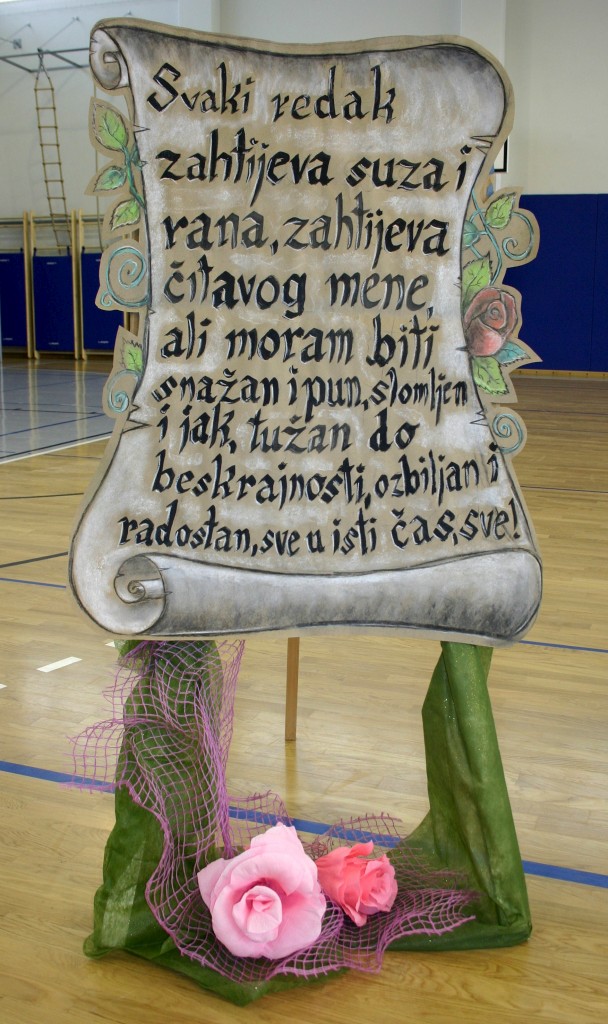 Svaki redak
zahtijeva suza i
rana, zahtijeva
čitavog mene,
ali moram biti
snažan i pun, slomljen
i jak, tužan do
beskrajnosti, ozbiljan i
radostan, sve u isti čas, sve!